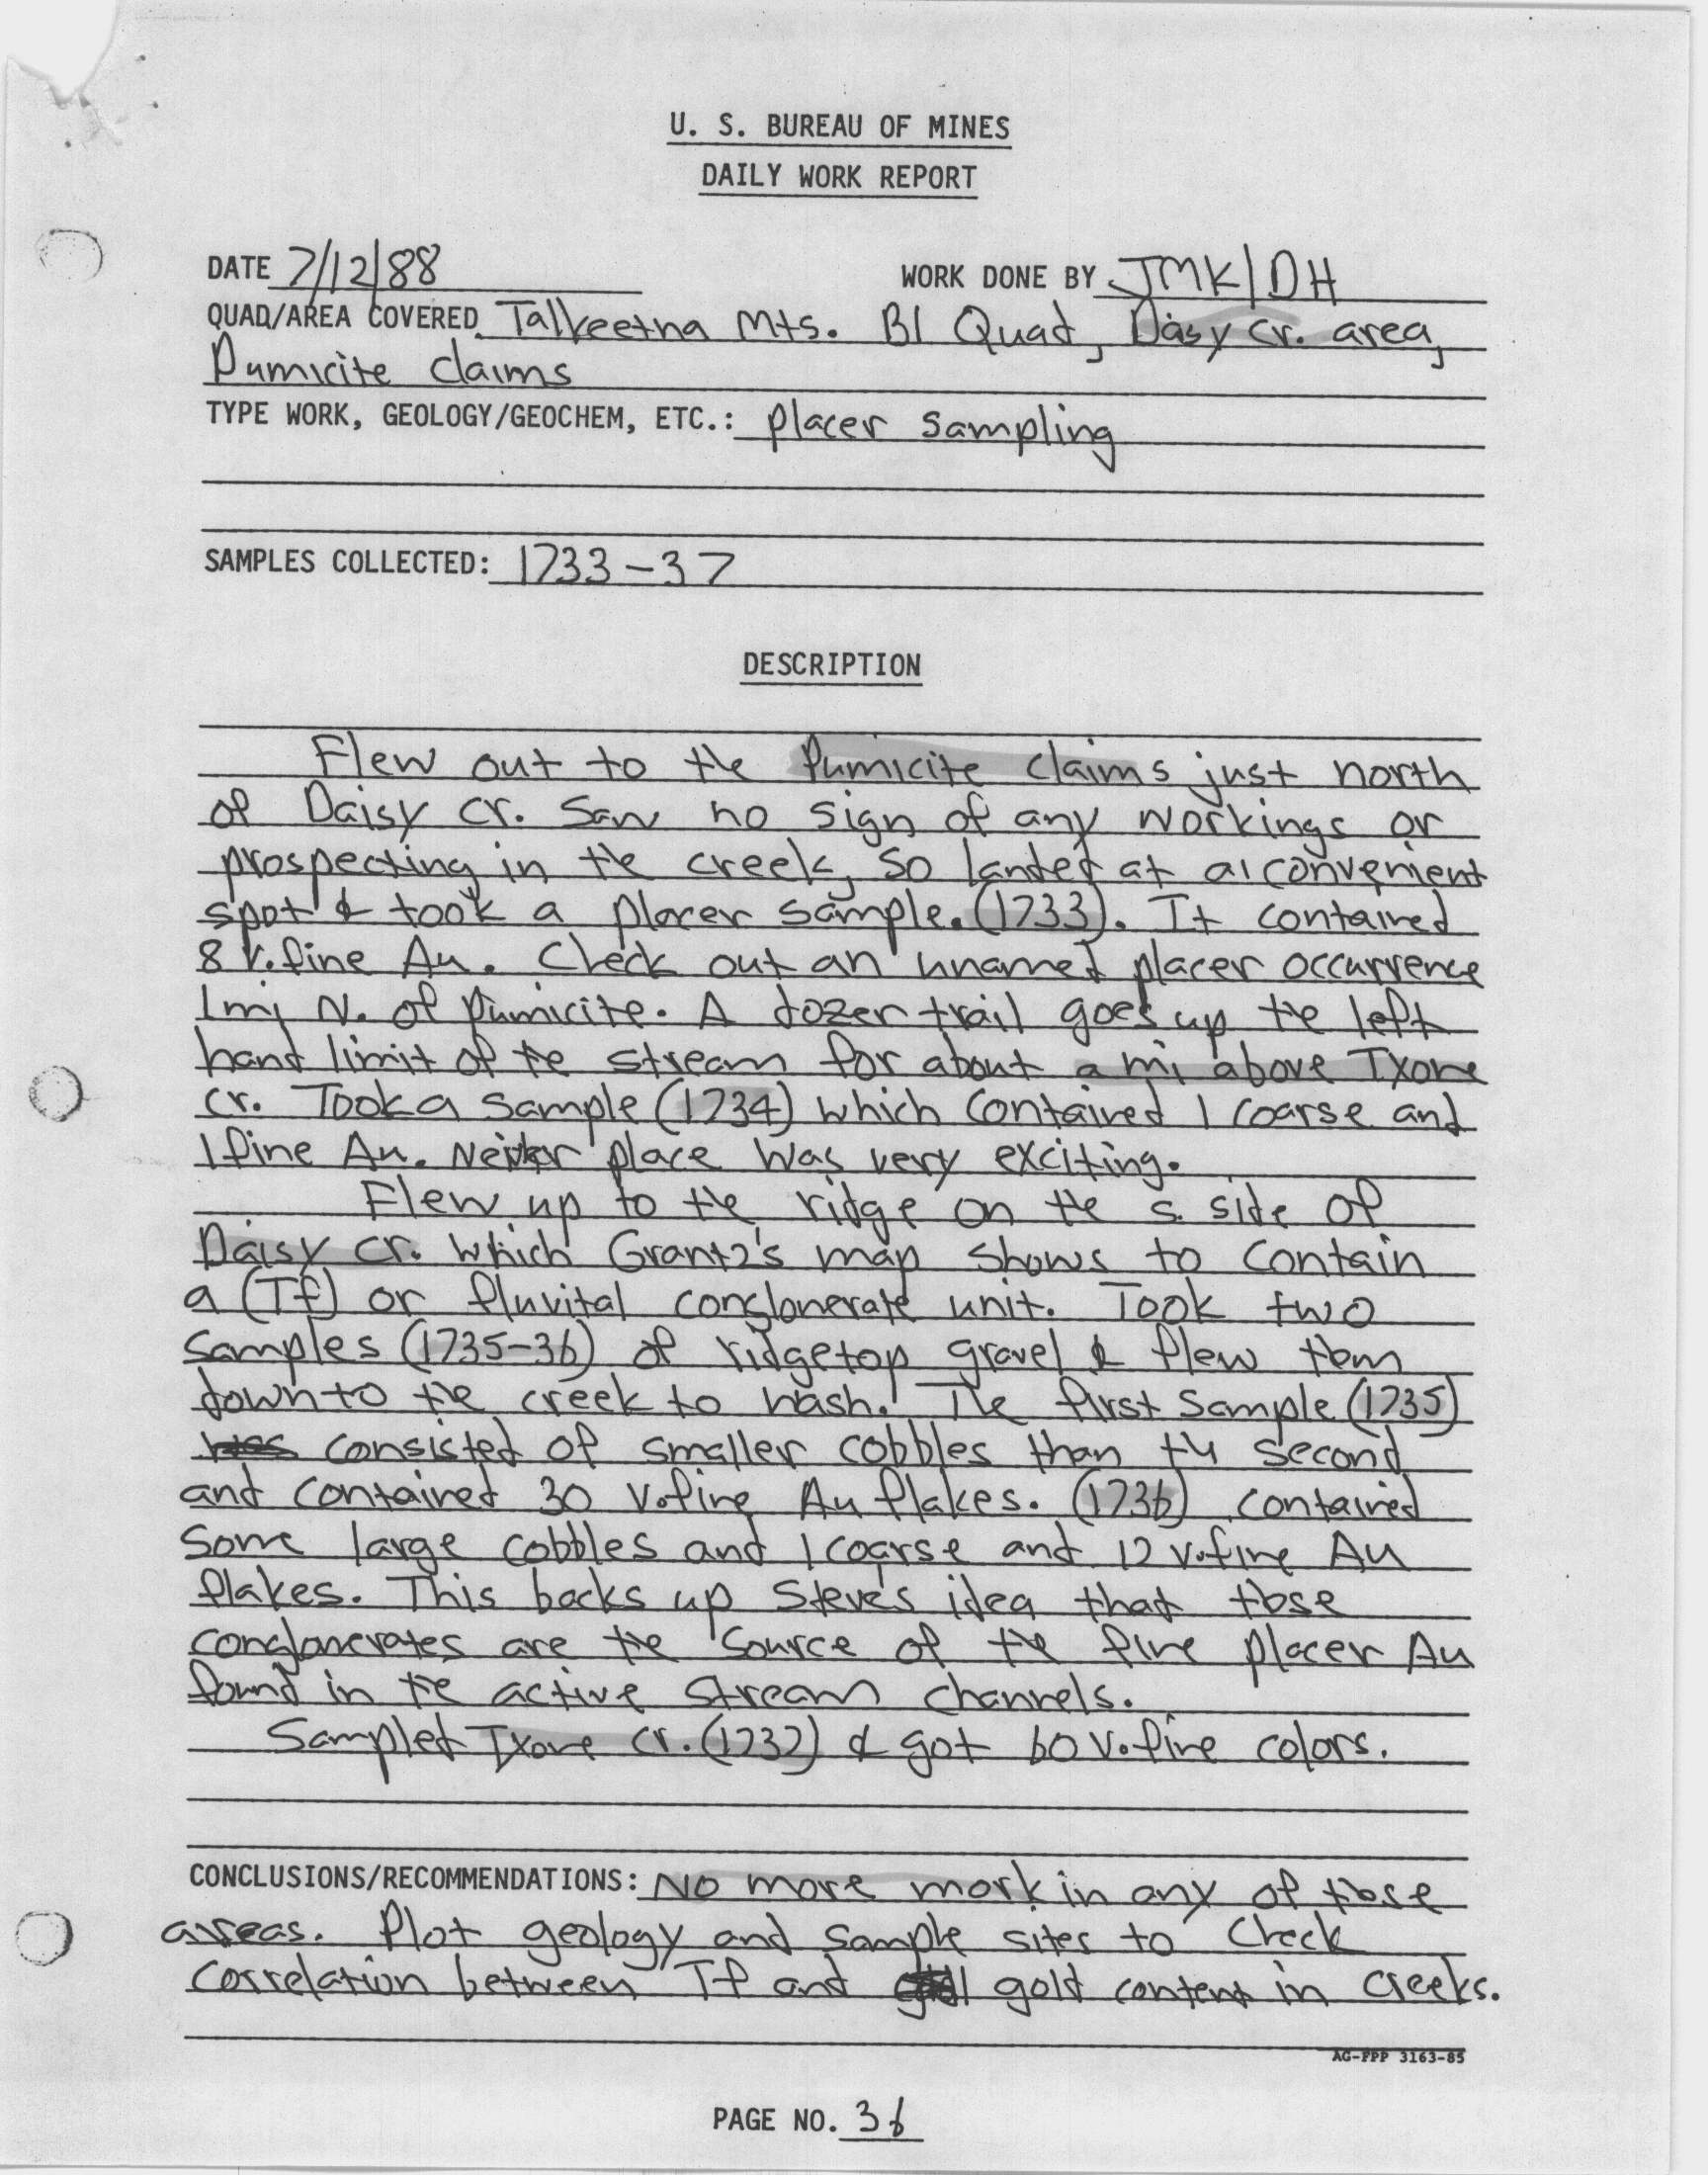 U. S. BUREAU OF MINES
DAILY WORK REPORT
DATE 7/12/88 WORK DONE BY JMK/DH
QUAD/AREA COVERED Talkeetna Mts. B1 Quad, Daisy Cr. area,
Pumicite claims
TYPE WORK, GEOLOGY/GEOCHEM, ETC.: placer sampling
SAMPLES COLLECTED: 1733-37
DESCRIPTION
Flew out to the Pumicite claims just north
of Daisy Cr. Saw no sign of any workings or
prospecting in the creek, so landed at a convenient
spot & took a placer sample. (1733). It contained
8 v. fine Au. Check out an unnamed placer occurrence
1 mi N. of Pumicite. A dozer trail goes up the left
hand limit of the stream for about a mi above Txone
cr. Took a sample (1734) which contained 1 coarse and
1 fine Au. Neither place was very exciting.
Flew up to the ridge on the s. side of
Daisy cr. which Grantz's map shows to contain
a (Tf) or fluvital conglonerate unit. Took two
samples (1735-36) of ridgetop gravel & flew them
down to the creek to wash. The first sample (1735)
was consisted of smaller cobbles than the second
and contained 30 v. fine Au flakes. (1736) contained
some large cobbles and 1 coarse and 12 v. fine Au
flakes. This backs up Steve's idea that these
conglonerates are the source of the fine placer Au
found in the active stream channels.
Sampled Txone Cr. (1737) & got 60 v. fine colors.
CONCLUSIONS/RECOMMENDATIONS: No more work in any of these
areas. Plot geology and sample sites to check
correlation between Tf and gold content in creeks.
AG-FPP 3163-85
PAGE NO. 36